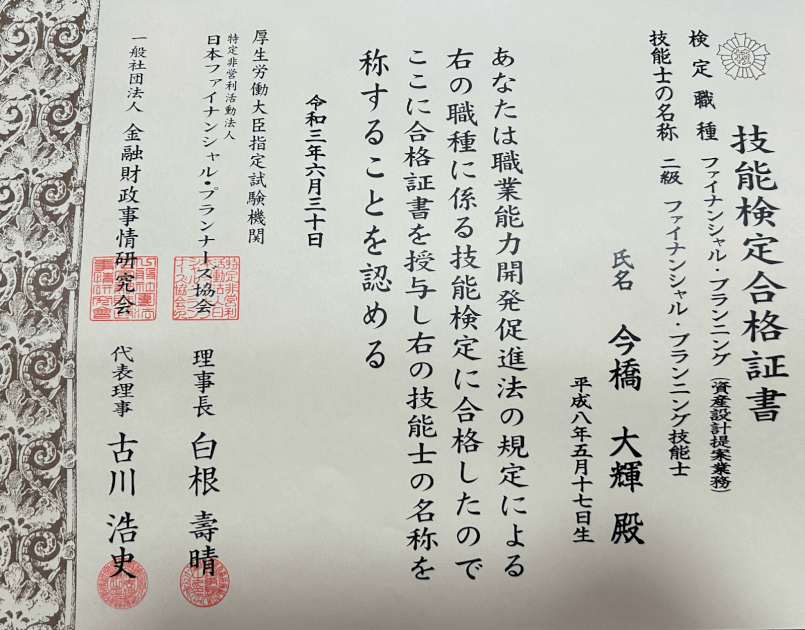 技能検定合格証書
検定職種 ファイナンシャル・プランニング(資産設計提案業務)
技能士の名称 二級 ファイナンシャル・プランニング技能士
氏名 今橋 大輝 殿
平成八年五月十七日生
あなたは職業能力開発促進法の規定による
右の職種に係る技能検定に合格したので
ここに合格証書を授与し右の技能士の名称を
称することを認める
令和三年六月三十日
厚生労働大臣指定試験機関
特定非営利活動法人
日本ファイナンシャル・プランナーズ協会 理事長 白根 壽晴
一般社団法人 金融財政事情研究会 代表理事 古川 浩史